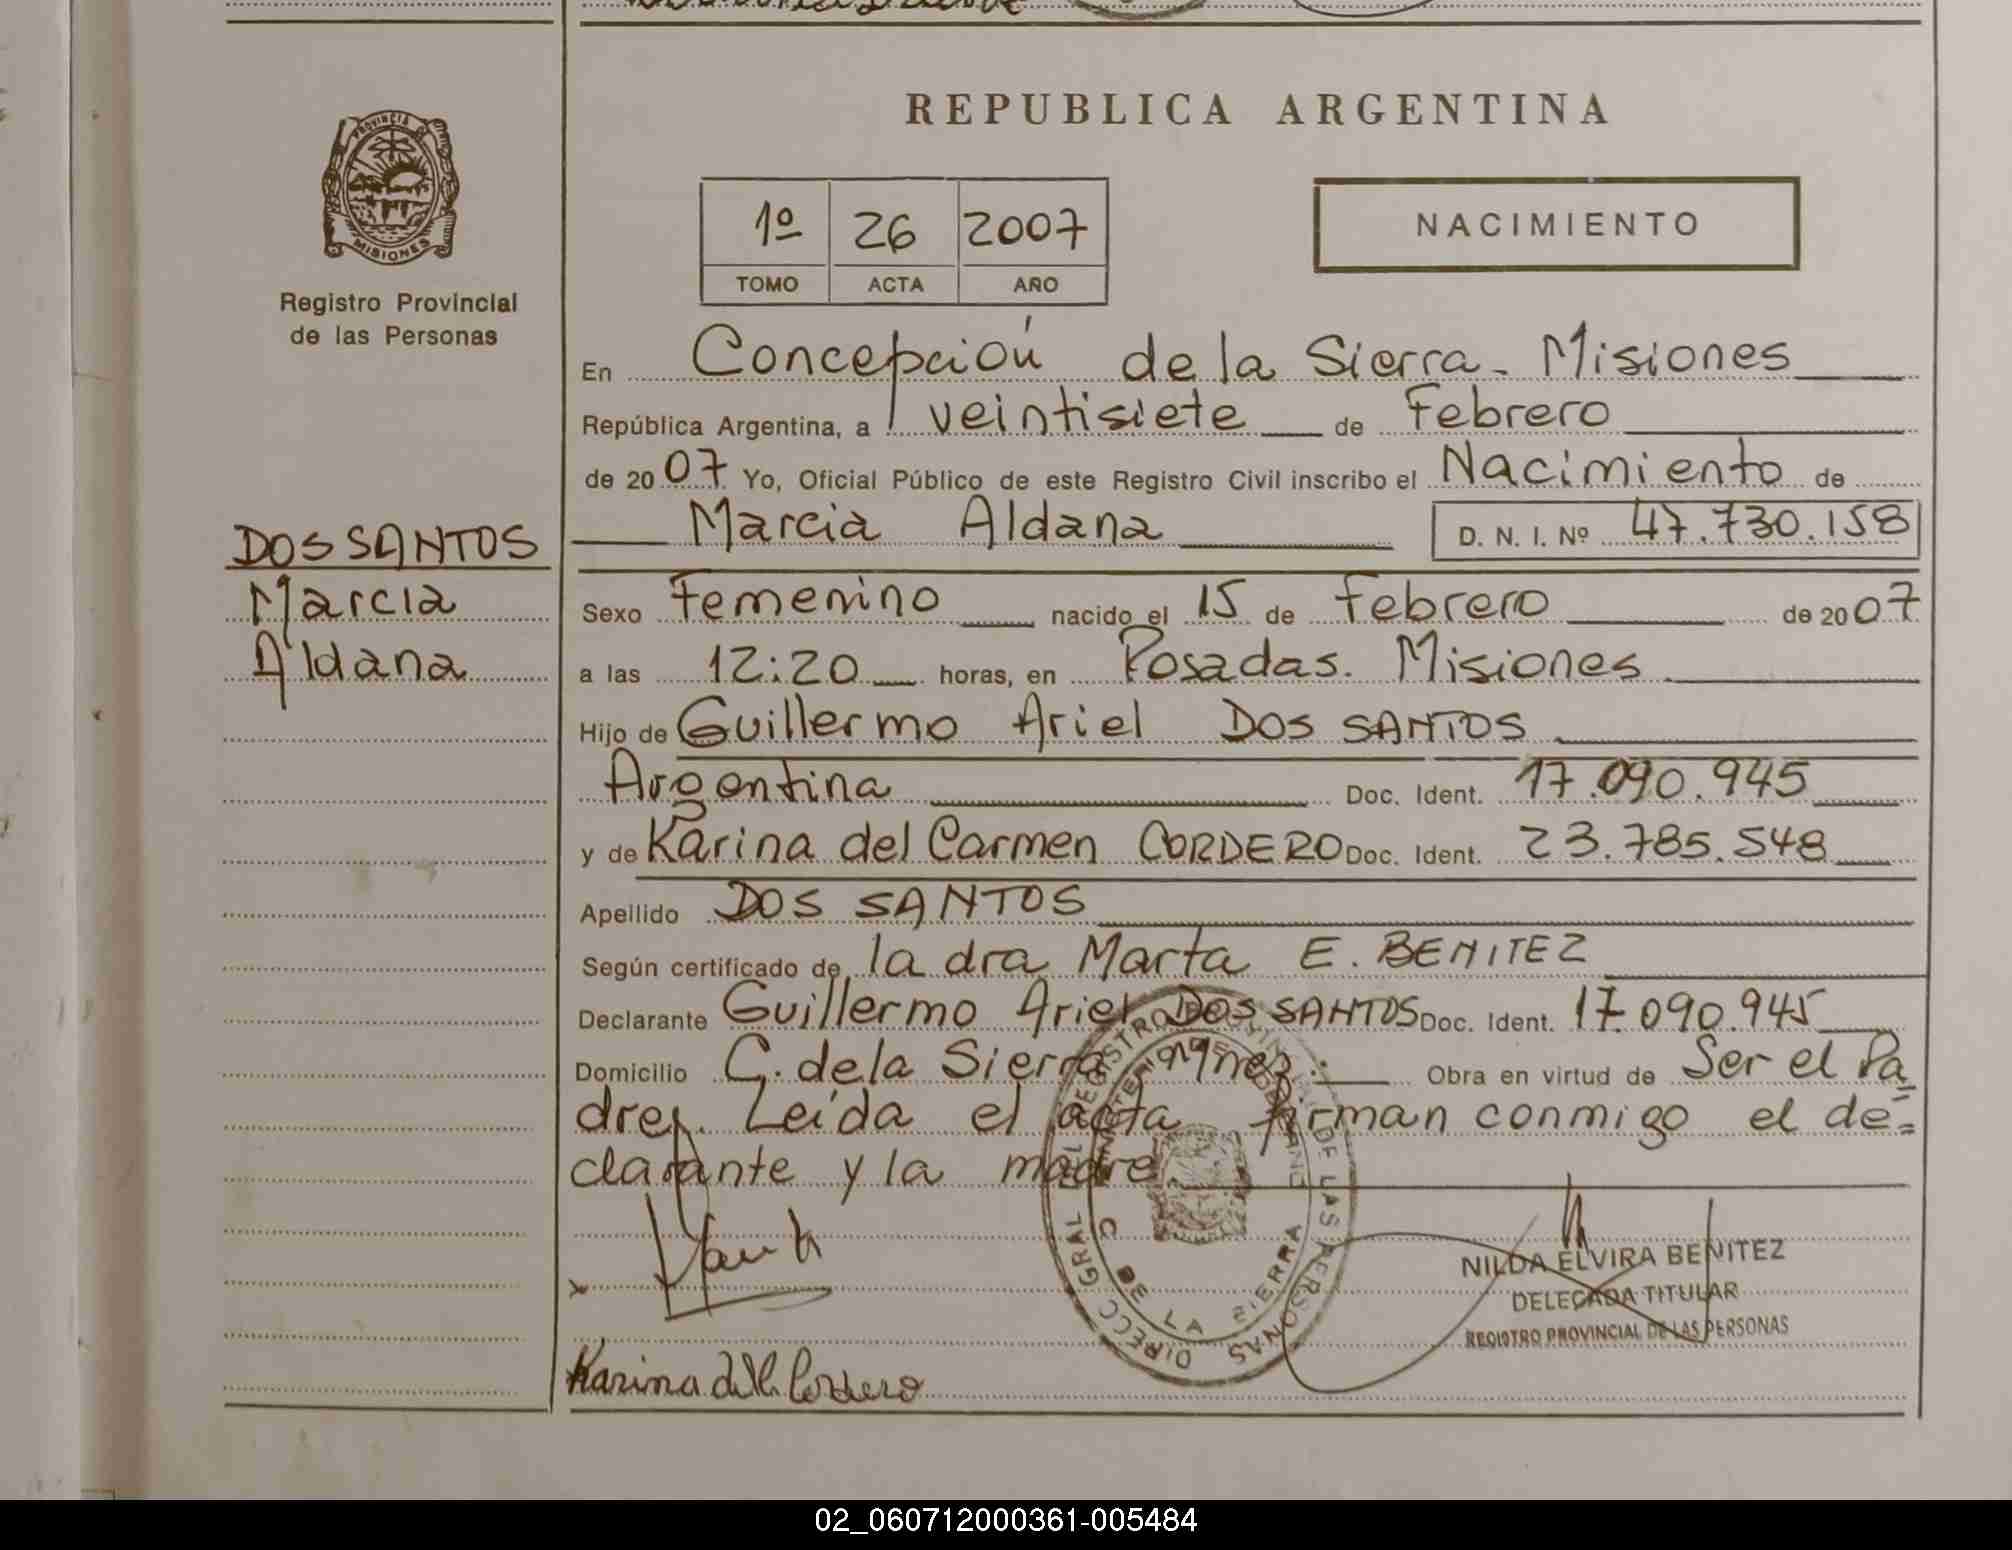 REPUBLICA ARGENTINA
PROVINCIA DE
MISIONES
Registro Provincial
de las Personas
1º 26 2007
TOMO ACTA AÑO
NACIMIENTO
En Concepción de la Sierra - Misiones
República Argentina, a veintisiete de Febrero
de 2007 Yo, Oficial Público de este Registro Civil inscribo el Nacimiento de
Marcia Aldana D. N. I. Nº 47.730.158
DOS SANTOS
Marcia
Aldana
Sexo Femenino nacido el 15 de Febrero de 2007
a las 12:20 horas, en Posadas. Misiones
Hijo de Guillermo Ariel DOS SANTOS
Argentina Doc. Ident. 17.090.945
y de Karina del Carmen CORDERO Doc. Ident. 23.785.548
Apellido DOS SANTOS
Según certificado de la dra Marta E. BENITEZ
Declarante Guillermo Ariel DOS SANTOS Doc. Ident. 17.090.945
Domicilio C. de la Sierra Mnes. Obra en virtud de Ser el Pa=
dre. Leída el acta firman conmigo el de=
clarante y la madre
DIRECC GRAL DEL REGISTRO PROVINCIAL DE LAS PERSONAS
MINISTERIO DE GOBIERNO
C DE LA SIERRA
NILDA ELVIRA BENITEZ
DELEGADA TITULAR
REGISTRO PROVINCIAL DE LAS PERSONAS
Karina del C. Cordero
02_060712000361-005484